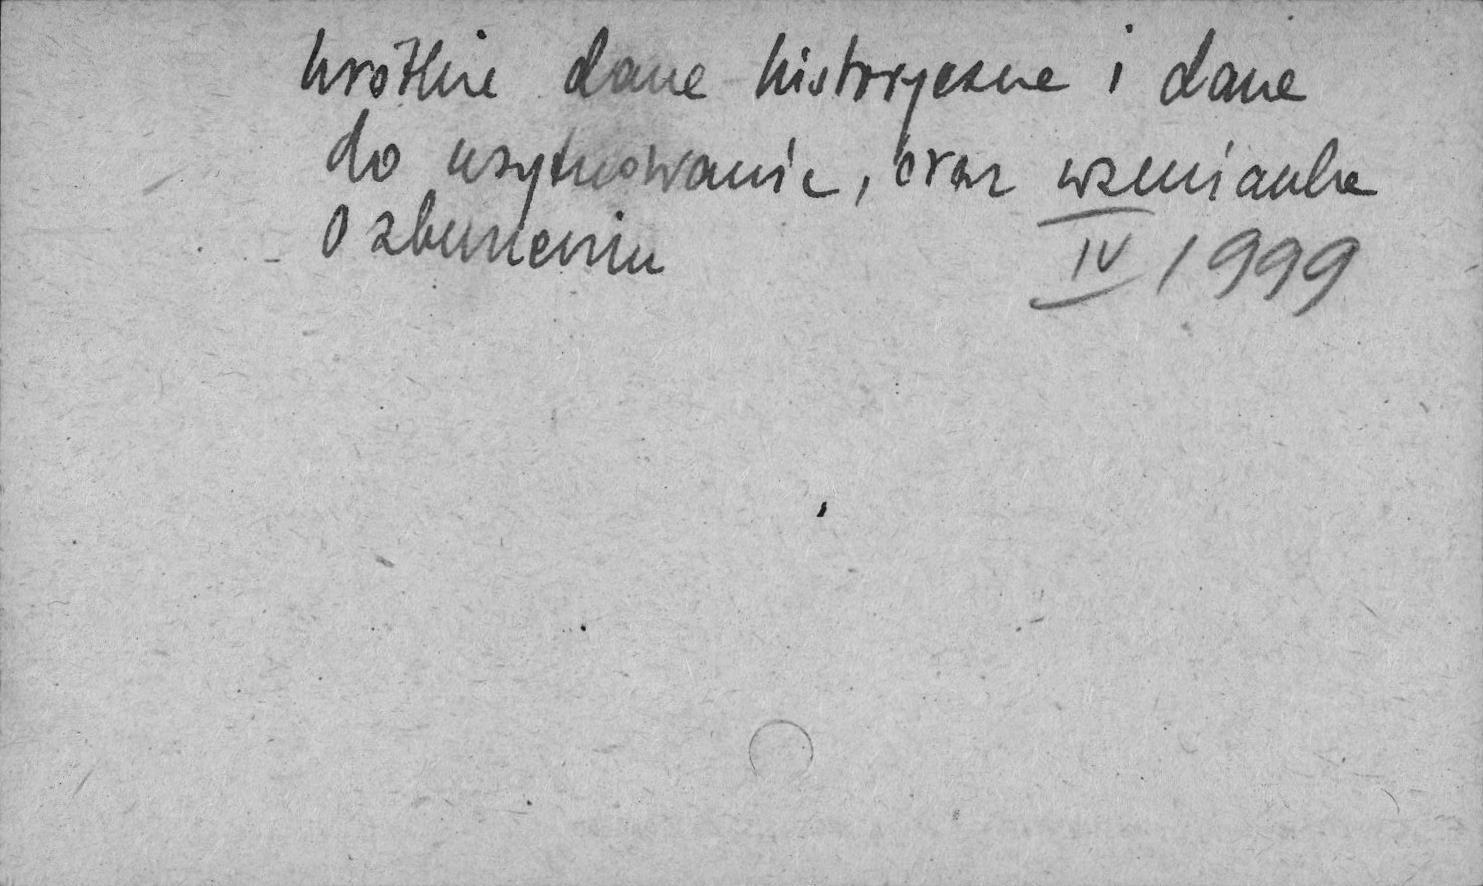 krótkie dane historyczne i dane
do usytuowania, oraz wzmianka
o zburzeniu
IV/999